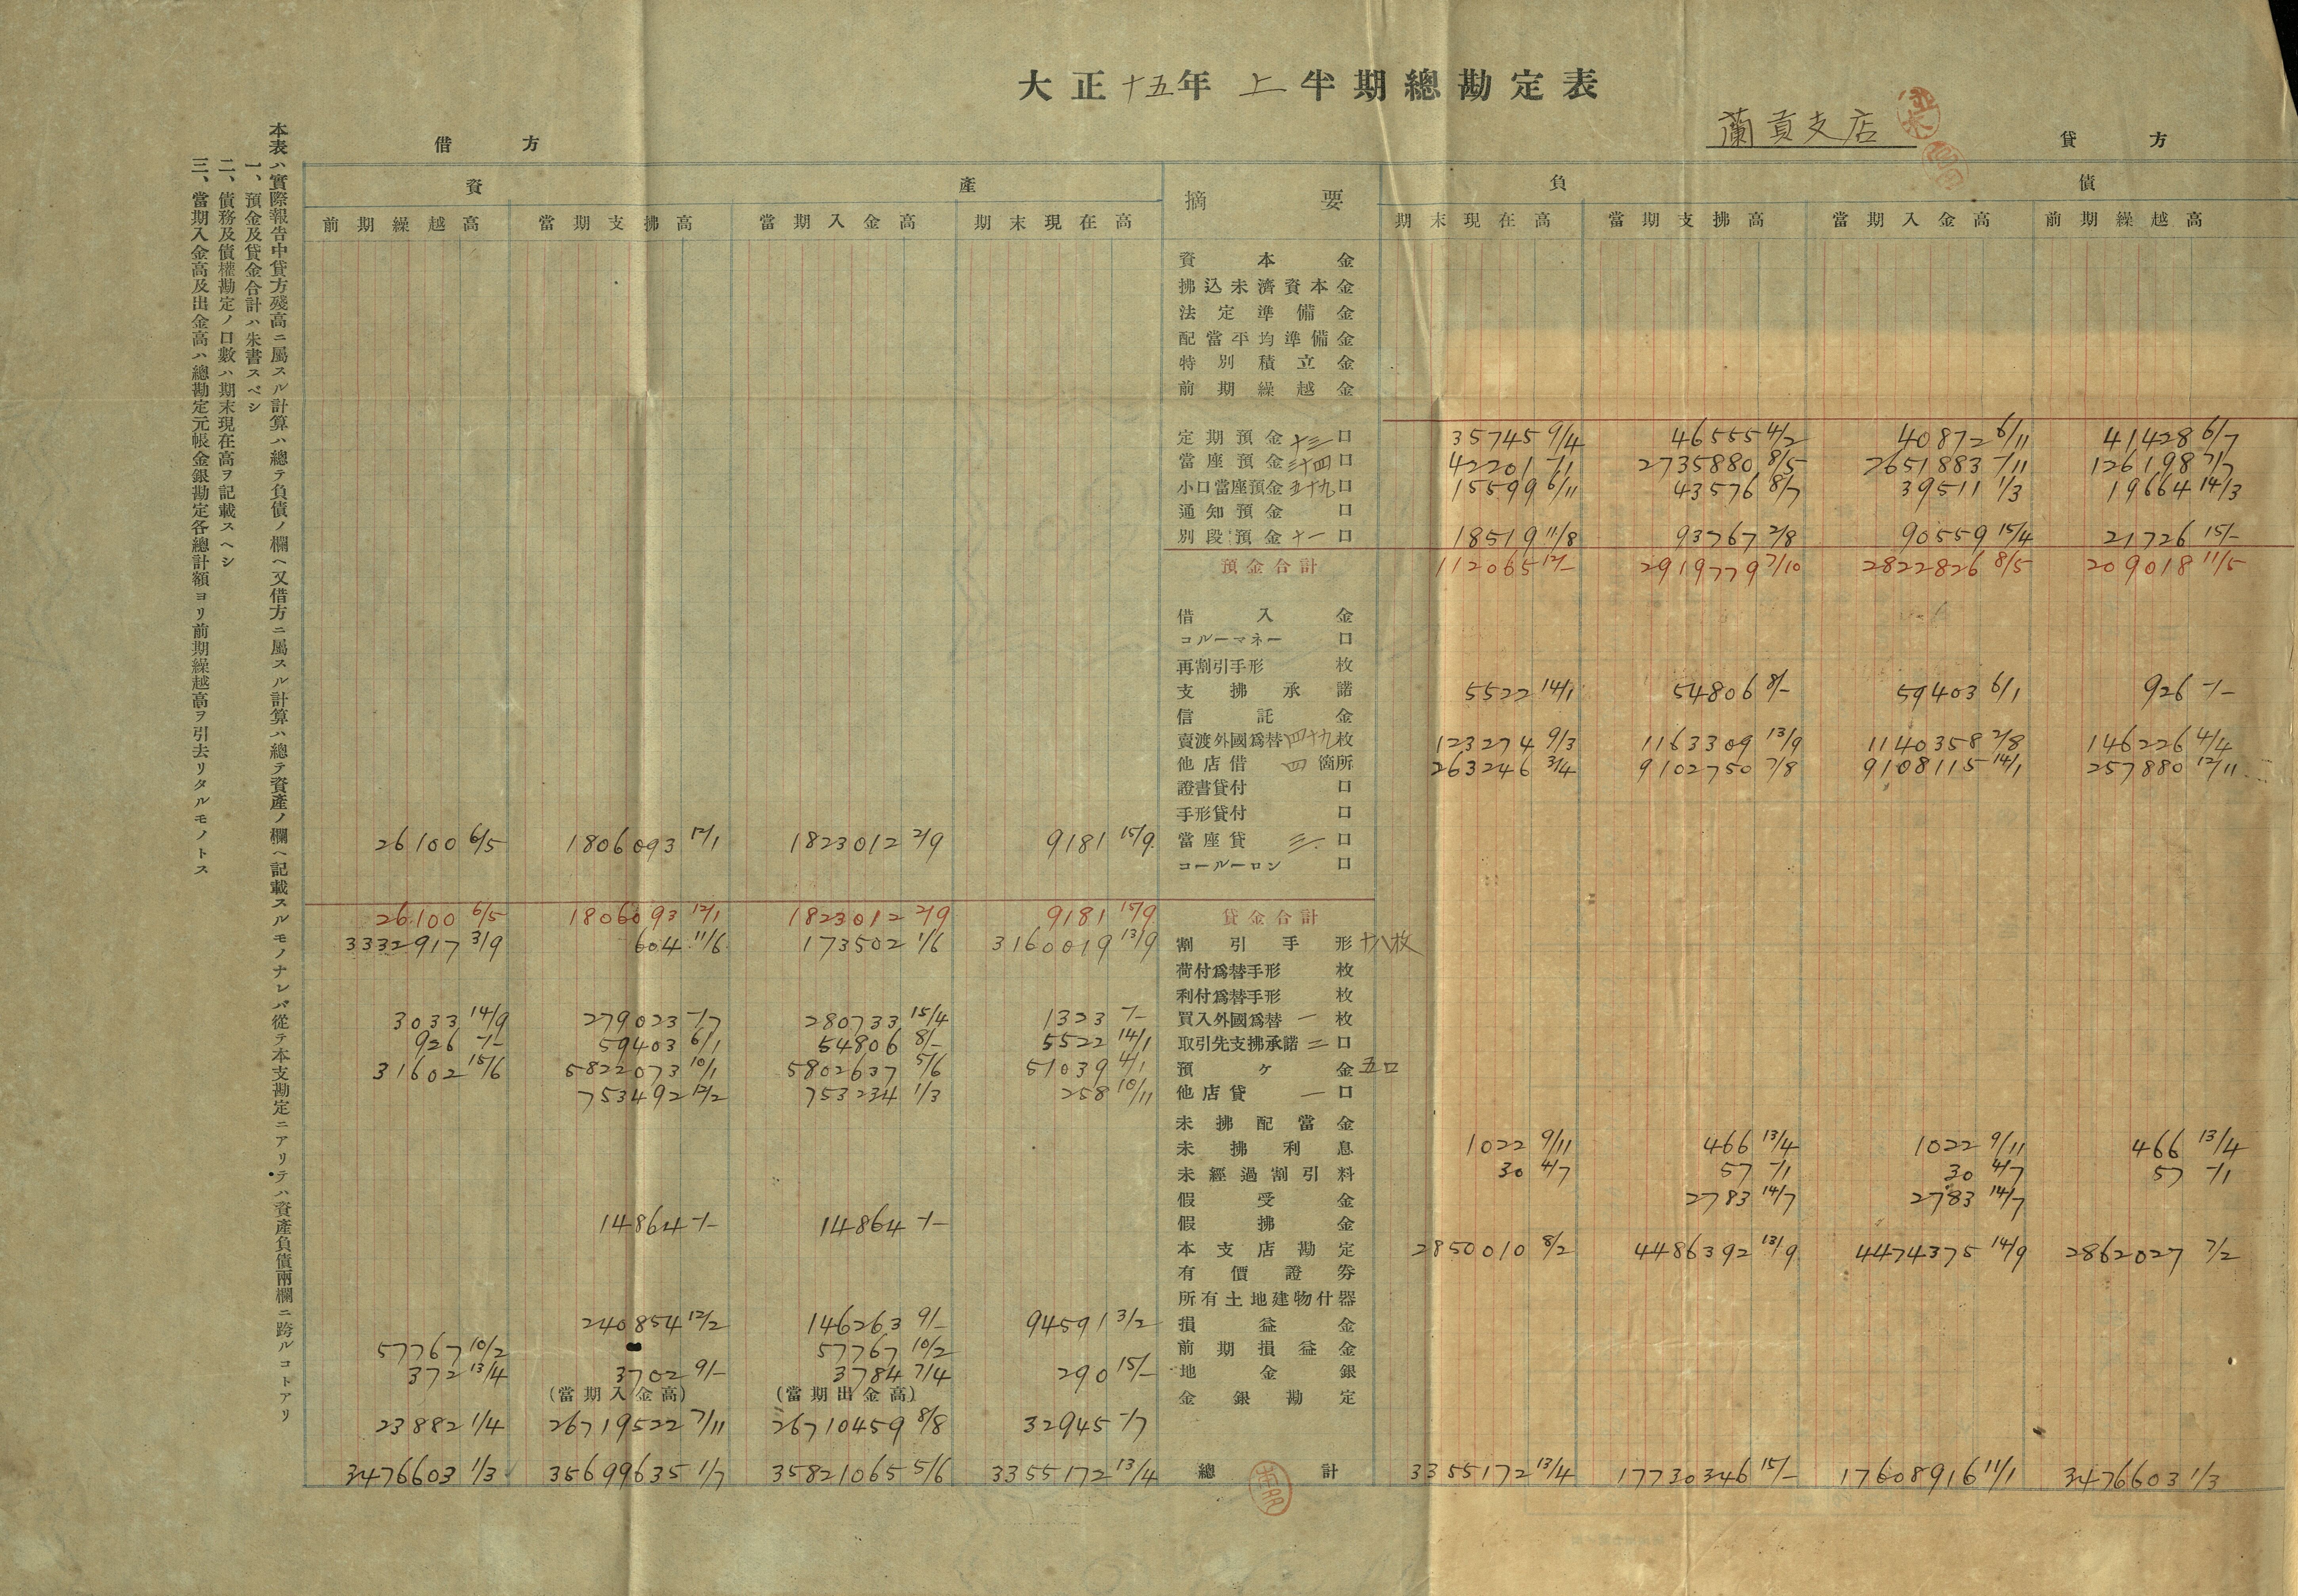 大正十五年上半期總勘定表
蘭貢支店
借方 貸方
資產 摘要 負債
前期繰越高 當期支拂高 當期入金高 期末現在高 期末現在高 當期支拂高 當期入金高 前期繰越高
資本金
拂込未濟資本金
法定準備金
配當平均準備金
特別積立金
前期繰越金
定期預金十三口 35745 9/4 46555 4/2 40872 6/11 41428 6/7
當座預金三十四口 42201 -/1 2735880 8/5 2651883 -/11 126198 7/7
小口當座預金五十九口 15599 6/11 43576 8/7 39511 1/3 19664 14/3
通知預金口
別段預金十一口 18519 11/8 93767 2/8 90559 15/4 21726 15/-
預金合計 112065 12/- 2919779 7/10 2822826 8/5 209018 11/5
借入金
コルーマネー口
再割引手形枚
支拂承諾 5522 14/1 54806 8/- 59403 6/1 926 -/-
信託金
賣渡外國爲替四十九枚 123274 9/3 1163309 13/9 1140358 2/8 146226 4/4
他店借四箇所 263246 3/4 9102750 7/8 9108115 14/1 257880 12/11
證書貸付口
手形貸付口
26100 6/5 1806093 12/1 1823012 2/9 9181 15/9 當座貸三口
コールーロン口
26100 6/5 1806093 12/1 1823012 2/9 9181 15/9 貸金合計
3332917 3/9 604 11/6 173502 1/6 3160019 13/9 割引手形十八枚
荷付爲替手形枚
利付爲替手形枚
3033 14/9 279023 -/7 280733 15/4 1323 -/- 買入外國爲替一枚
926 -/- 59403 6/1 54806 8/- 5522 14/1 取引先支拂承諾二口
31602 15/6 5822073 10/1 5802637 5/6 51039 4/1 預ケ金五口
753492 12/2 753234 1/3 258 10/11 他店貸一口
未拂配當金
未拂利息 1022 9/11 466 13/4 1022 9/11 466 13/4
未經過割引料 30 4/7 57 -/1 30 4/7 57 -/1
假受金 2783 14/7 2783 14/7
14864 -/- 14864 -/- 假拂金
本支店勘定 2850010 8/2 4486392 13/9 4474375 14/9 2862027 7/2
有價證券
所有土地建物什器
240854 12/2 146263 9/- 94591 3/2 損益金
57767 10/2 57767 10/2 前期損益金
372 13/4 3702 9/- 3784 7/4 290 15/- 地金銀
(當期入金高) (當期出金高) 金銀勘定
23882 1/4 26719522 7/11 26710459 8/8 32945 -/7
3476603 1/3 35699635 1/7 35821065 5/6 3355172 13/4 總計 3355172 13/4 17730346 15/- 17608916 11/1 3476603 1/3
本表ハ實際報告中貸方殘高ニ屬スル計算ハ總テ負債ノ欄ヘ又借方ニ屬スル計算ハ總テ資產ノ欄ヘ記載スルモノナレバ從テ本支勘定ニアリテハ資產負債兩欄ニ跨ルコトアリ
一、預金及貸金合計ハ朱書スベシ
二、債務及債權勘定ノ口數ハ期末現在高ヲ記載スヘシ
三、當期入金高及出金高ハ總勘定元帳金銀勘定各總計額ヨリ前期繰越高ヲ引去リタルモノトス